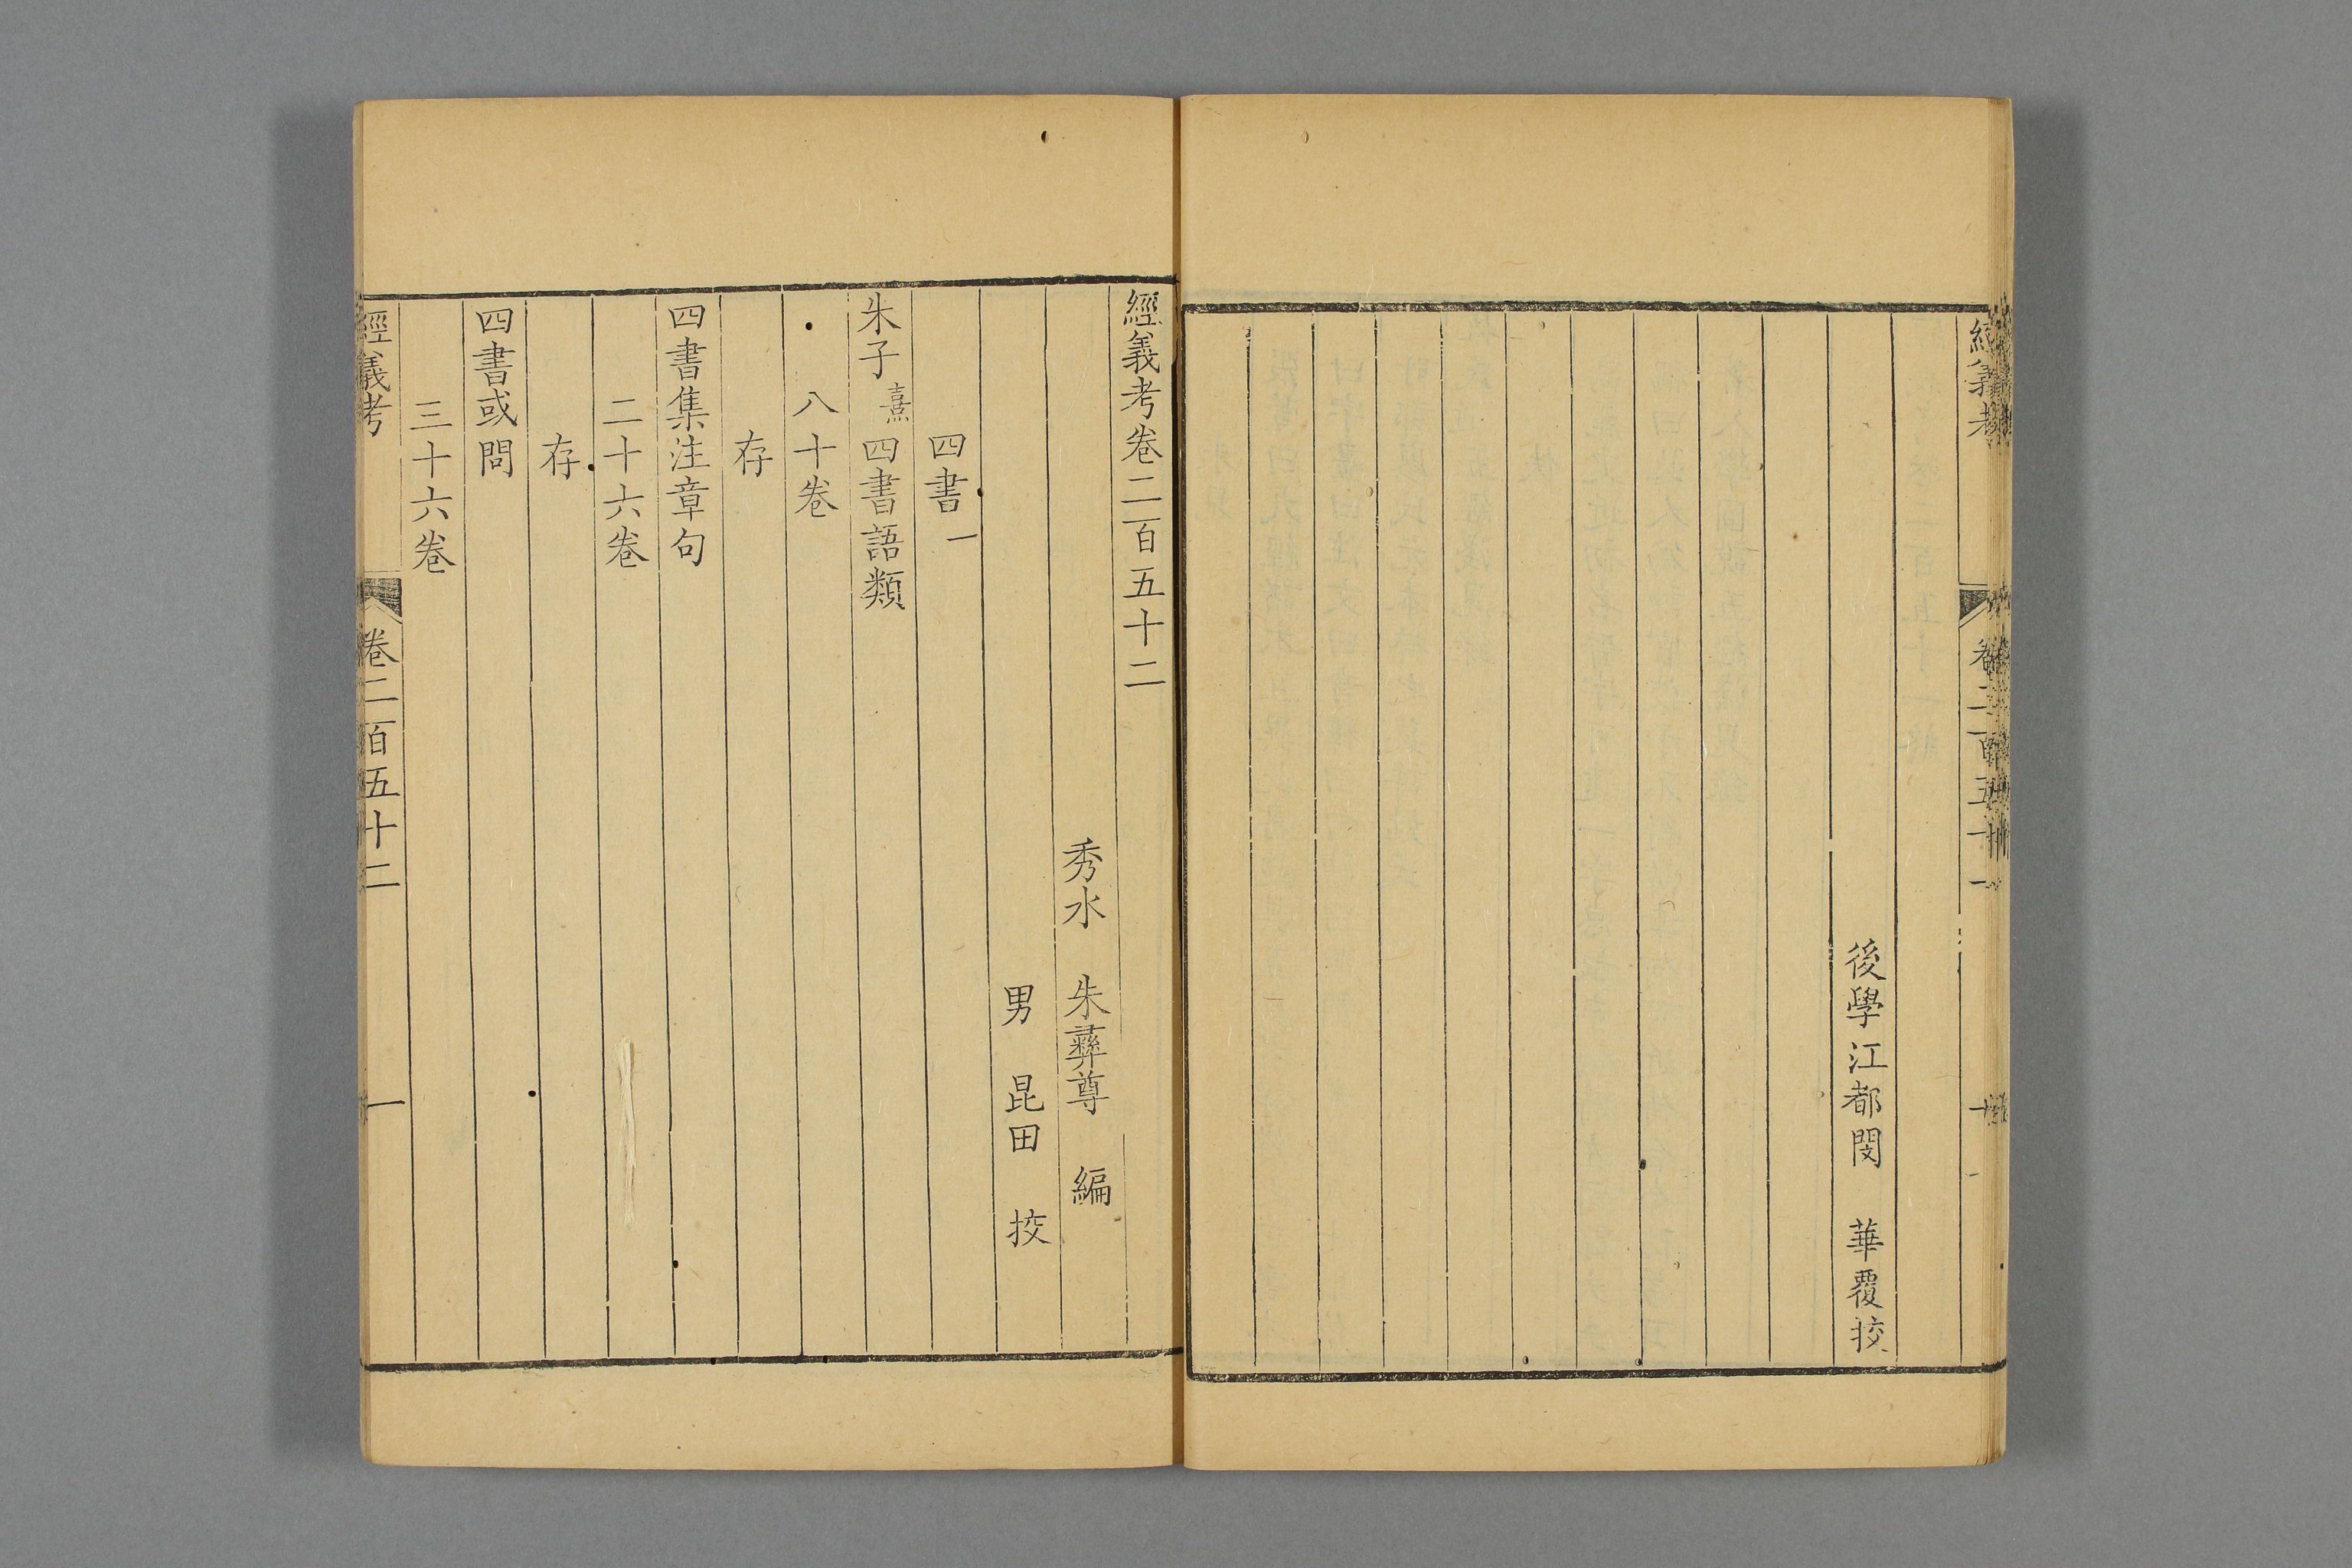 經義考
卷二百五十一
後學江都閔　華覆挍
經義考卷二百五十二
秀水　朱彝尊　編
男　昆田　挍
四書一
朱子熹四書語類
八十卷
存
四書集注章句
二十六卷
存
四書或問
三十六卷
經義考
卷二百五十二
一